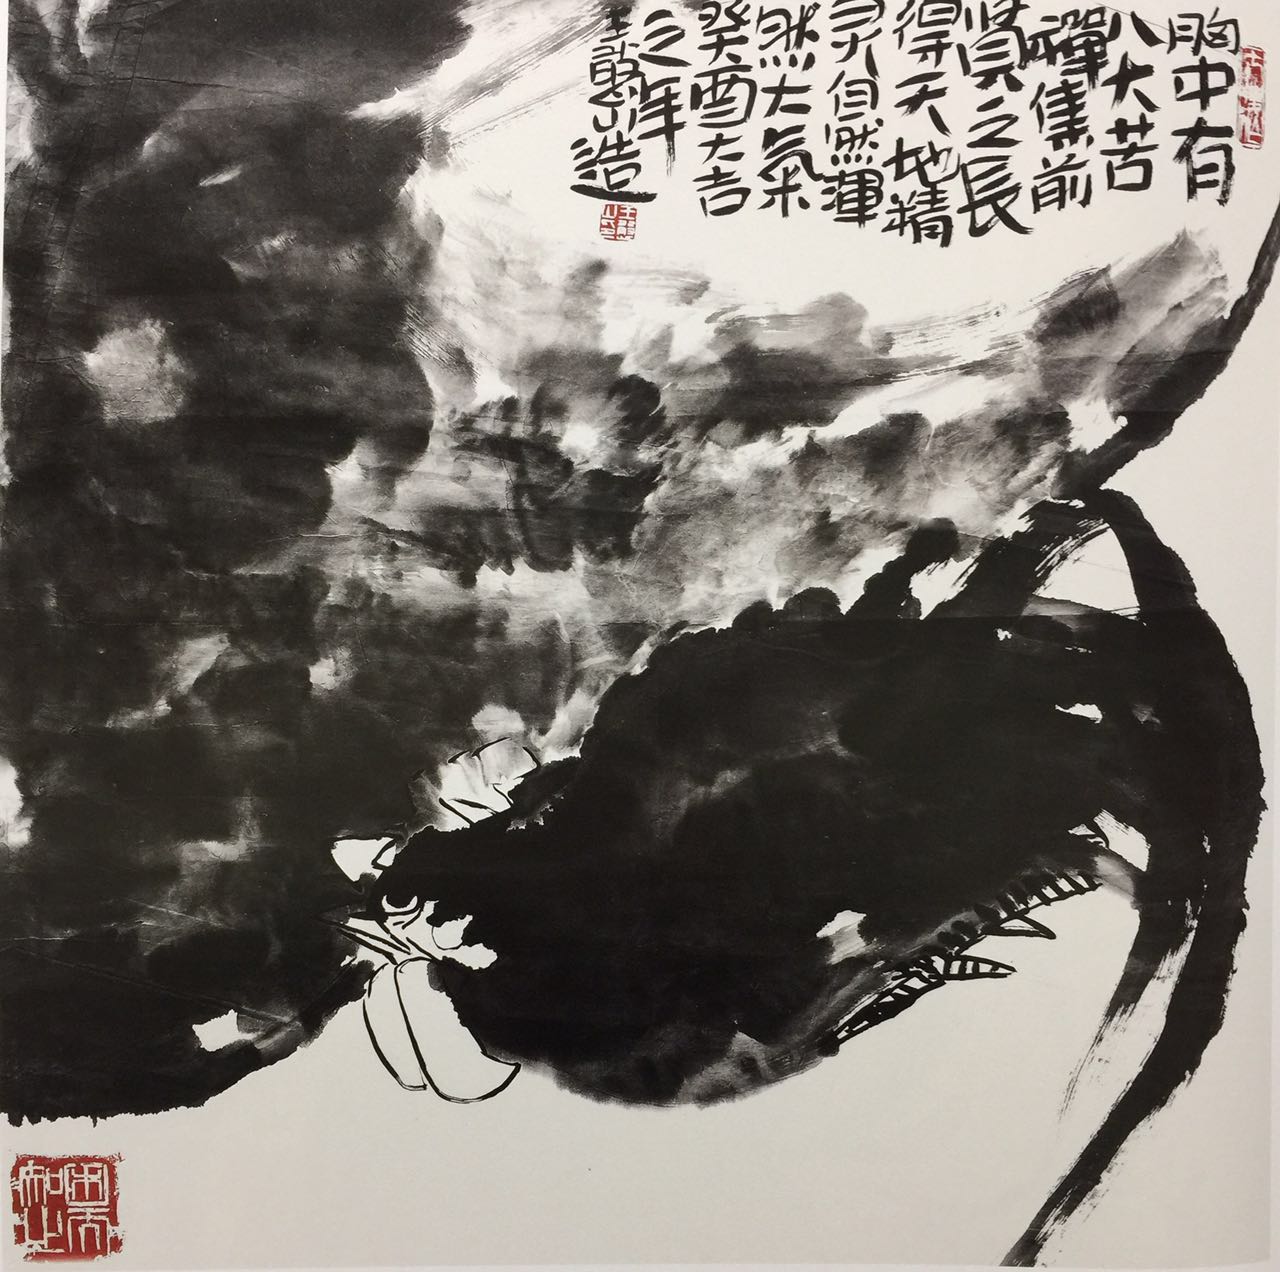 胸中有
八大苦
禪集前
賢之長
得天地精
灵自然渾
然大氣
癸酉大吉
之年
王憨山造